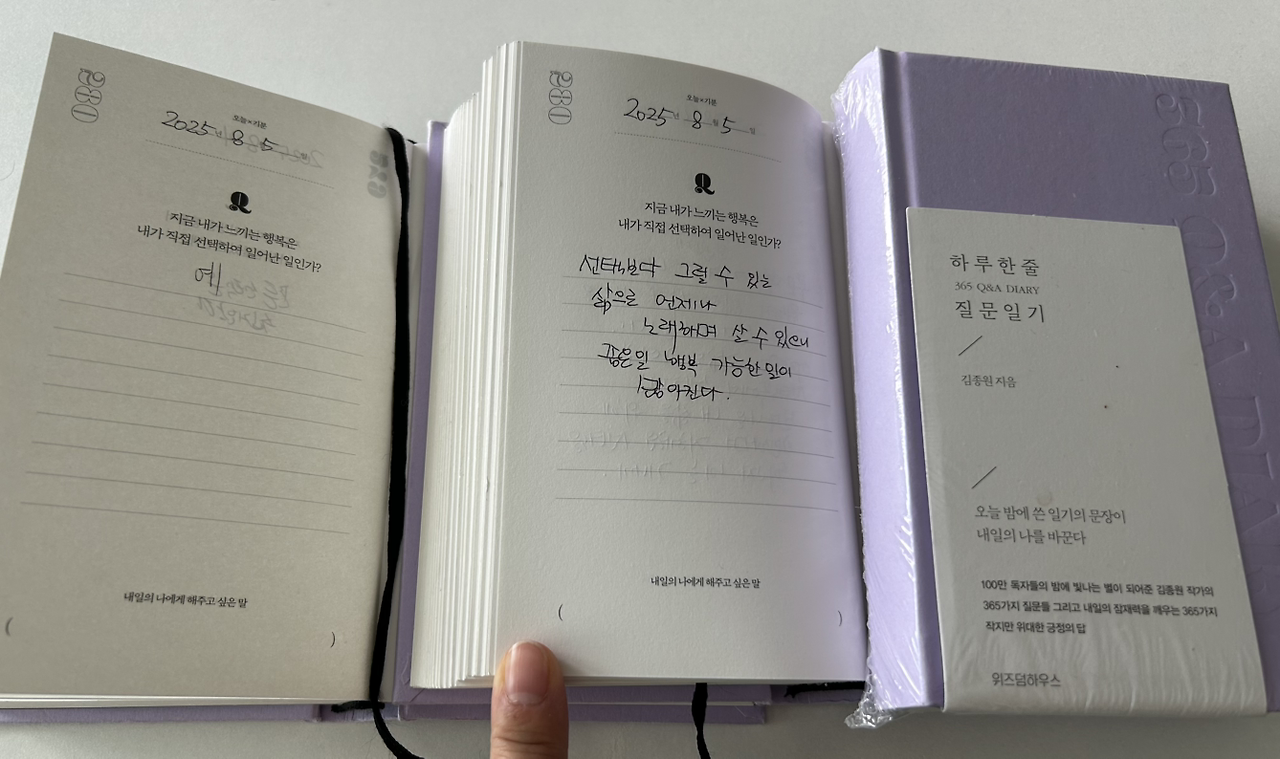 오늘×기분
2025년 8월 5일
Q
지금 내가 느끼는 행복은
내가 직접 선택하여 일어난 일인가?
예
내일의 나에게 해주고 싶은 말
( )
오늘×기분
2025년 8월 5일
Q
지금 내가 느끼는 행복은
내가 직접 선택하여 일어난 일인가?
선택보다 그럴 수 있는
삶으로 언제나
노래하며 살 수 있으니
좁은일 행복 가능한 일이
많아진다.
내일의 나에게 해주고 싶은 말
( )
365 Q&A DIA
하루한줄
365 Q&A DIARY
질문일기
김종원 지음
오늘 밤에 쓴 일기의 문장이
내일의 나를 바꾼다
100만 독자들의 밤에 빛나는 별이 되어준 김종원 작가의
365가지 질문들 그리고 내일의 잠재력을 깨우는 365가지
작지만 위대한 긍정의 답
위즈덤하우스